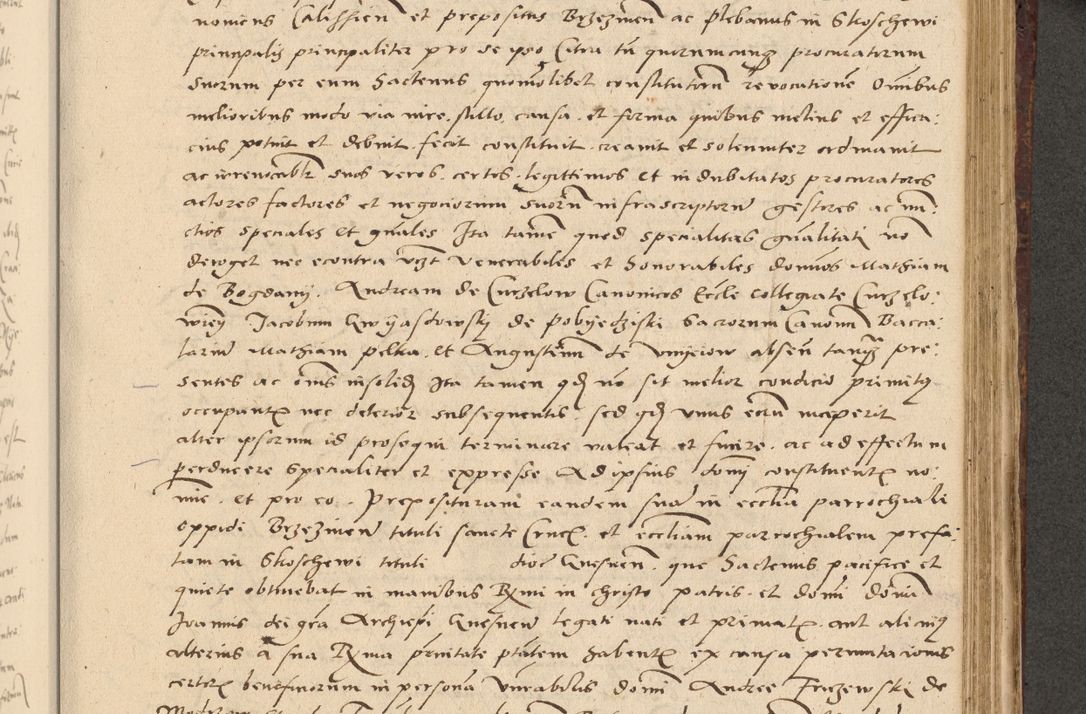 nonicus Calissien et prepositus Brzezinen ac plebanus in Skoschewi
principalis principaliter pro se ipso Citra tn quorumcunqz procuratorum
suorum per eum hactenus quomolibet constitutorum revocatione Omnibus
melioribus modo via iure stillo causa et forma quibus melius et effica:
cius potuit et debuit fecit constituit creauit et solenniter ordinauit
ac irreuocablr suos veros certos legittimos et indubitatos procuratores
actores factores et negociorum suorum infrascriptorum gestores ac nun:
ctios speciales et gnales Ita tamen quod specialitas gnalitati non
deroget nec econtra vzt Venerabiles et honorabiles dominos Mathiam
de Bogdany Andream de Curzelow Canonicos Eccle collegiate Curzelo:
wien Jacobum Gwijasdowskj de Pobyedziski Sacrorum Canonum Bacca:
larium Mathiam pelka et Augustinum de Vnijeiow absen tanqz pre:
sentes ac omnes insolid Ita tamen qd no sit melior condicio primitus
occupantis nec deterior subsequentis sed qd vnus eorum inceperit
alter ipsorum id prosequi terminare valeat et finire ac ad effectum
perducere specialiter et expresse Ad ipsius domi constituentis no:
mine et pro eo Preposituram eandem suam in ecclia parrochiali
oppidi Brzezinen tituli sancte Crucis et eccliam parrochialem prefa:
tam in Skoschewi tituli dioc Gnesnen que hactenus pacifice et
quiete obtinebat in manibus Rmi in christo patris et domi domi
Joannis dei gra Archiepi Gnesnen legati nati et primatis aut alicuius
alterius a sua Rma prnitate ptatem habentis ex causa permutacionis
certorum beneficiorum in persona Vnrabilis domi Andree Friczewski de